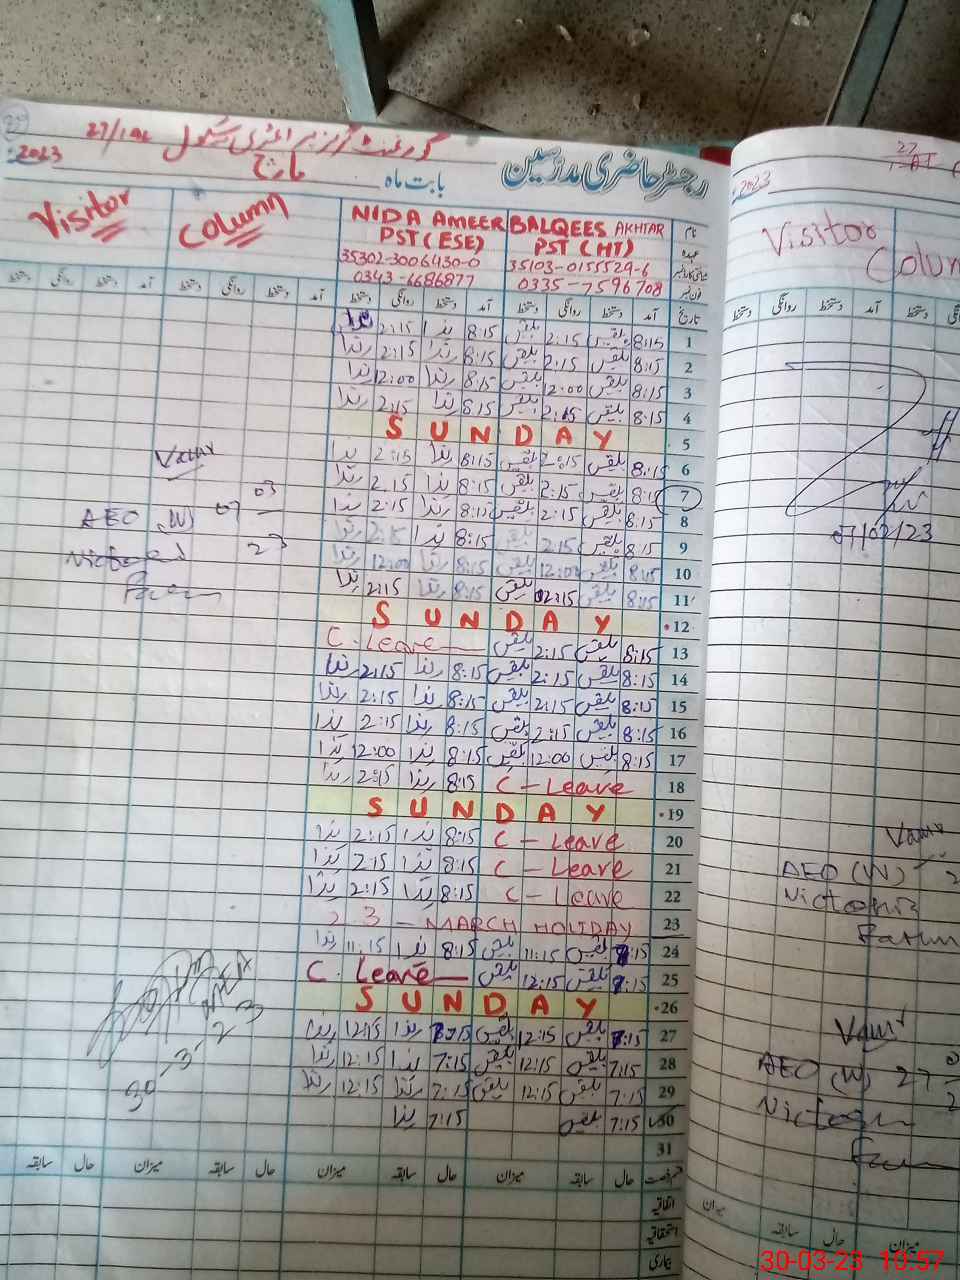 گورنمنٹ گرلز پرائمری سکول 27/1AL
رجسٹر حاضری مدرسین بابت ماہ مارچ 2023ء
Visitor Column NIDA AMEER BALQEES AKHTAR نام
PST (ESE) PST (HT) عہدہ
35302-3006430-0 35103-0155529-6
0343-6686877 0335-7596708
دستخط روانگی دستخط آمد دستخط روانگی دستخط آمد دستخط روانگی دستخط آمد دستخط روانگی دستخط آمد تاریخ
ندا 2:15 ندا 8:15 بلقیس 2:15 بلقیس 8:15 1
ندا 2:15 ندا 8:15 بلقیس 2:15 بلقیس 8:15 2
ندا 12:00 ندا 8:15 بلقیس 12:00 بلقیس 8:15 3
ندا 2:15 ندا 8:15 بلقیس 2:15 بلقیس 8:15 4
SUNDAY 5
ندا 2:15 ندا 8:15 بلقیس 2:15 بلقیس 8:15 6
ندا 2:15 ندا 8:15 بلقیس 2:15 بلقیس 8:15 7
ندا 2:15 ندا 8:15 بلقیس 2:15 بلقیس 8:15 8
ندا 2:15 ندا 8:15 بلقیس 2:15 بلقیس 8:15 9
ندا 12:00 ندا 8:15 بلقیس 12:00 بلقیس 8:15 10
ندا 2:15 ندا 8:15 بلقیس 02:15 بلقیس 8:15 11
SUNDAY 12
C. Leave بلقیس 2:15 بلقیس 8:15 13
ندا 2:15 ندا 8:15 بلقیس 2:15 بلقیس 8:15 14
ندا 2:15 ندا 8:15 بلقیس 2:15 بلقیس 8:15 15
ندا 2:15 ندا 8:15 بلقیس 2:15 بلقیس 8:15 16
ندا 12:00 ندا 8:15 بلقیس 12:00 بلقیس 8:15 17
ندا 2:15 ندا 8:15 C - Leave 18
SUNDAY 19
ندا 2:15 ندا 8:15 C - Leave 20
ندا 2:15 ندا 8:15 C - Leave 21
ندا 2:15 ندا 8:15 C - Leave 22
23 - MARCH HOLIDAY 23
ندا 11:15 ندا 8:15 بلقیس 11:15 بلقیس :15 24
C. Leave بلقیس 12:15 بلقیس :15 25
SUNDAY 26
ندا 12:15 ندا 7:15 بلقیس 12:15 بلقیس :15 27
ندا 12:15 ندا 7:15 بلقیس 12:15 بلقیس 7:15 28
ندا 12:15 ندا 7:15 بلقیس 12:15 بلقیس 7:15 29
ندا 7:15 بلقیس 7:15 30
31
سابقہ حال میزان سابقہ حال میزان سابقہ حال میزان سابقہ حال قسم رخصت
اتفاقیہ
استحقاقیہ
بیماری
AEO (W) 07 03
23
30-3-23
27
2023ء
Visitor
Column
دستخط روانگی دستخط آمد دستخط
07/03/23
AEO (W)
AEO (W) 27
میزان سابقہ حال میزان
30-03-23 10:57